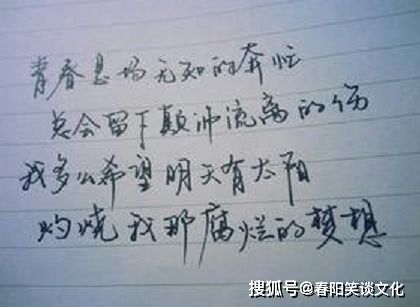 青春是场无知的奔忙
总会留下颠沛流离的伤
我多么希望明天有太阳
灼烧我那腐烂的梦想
搜狐号@春阳笑谈文化